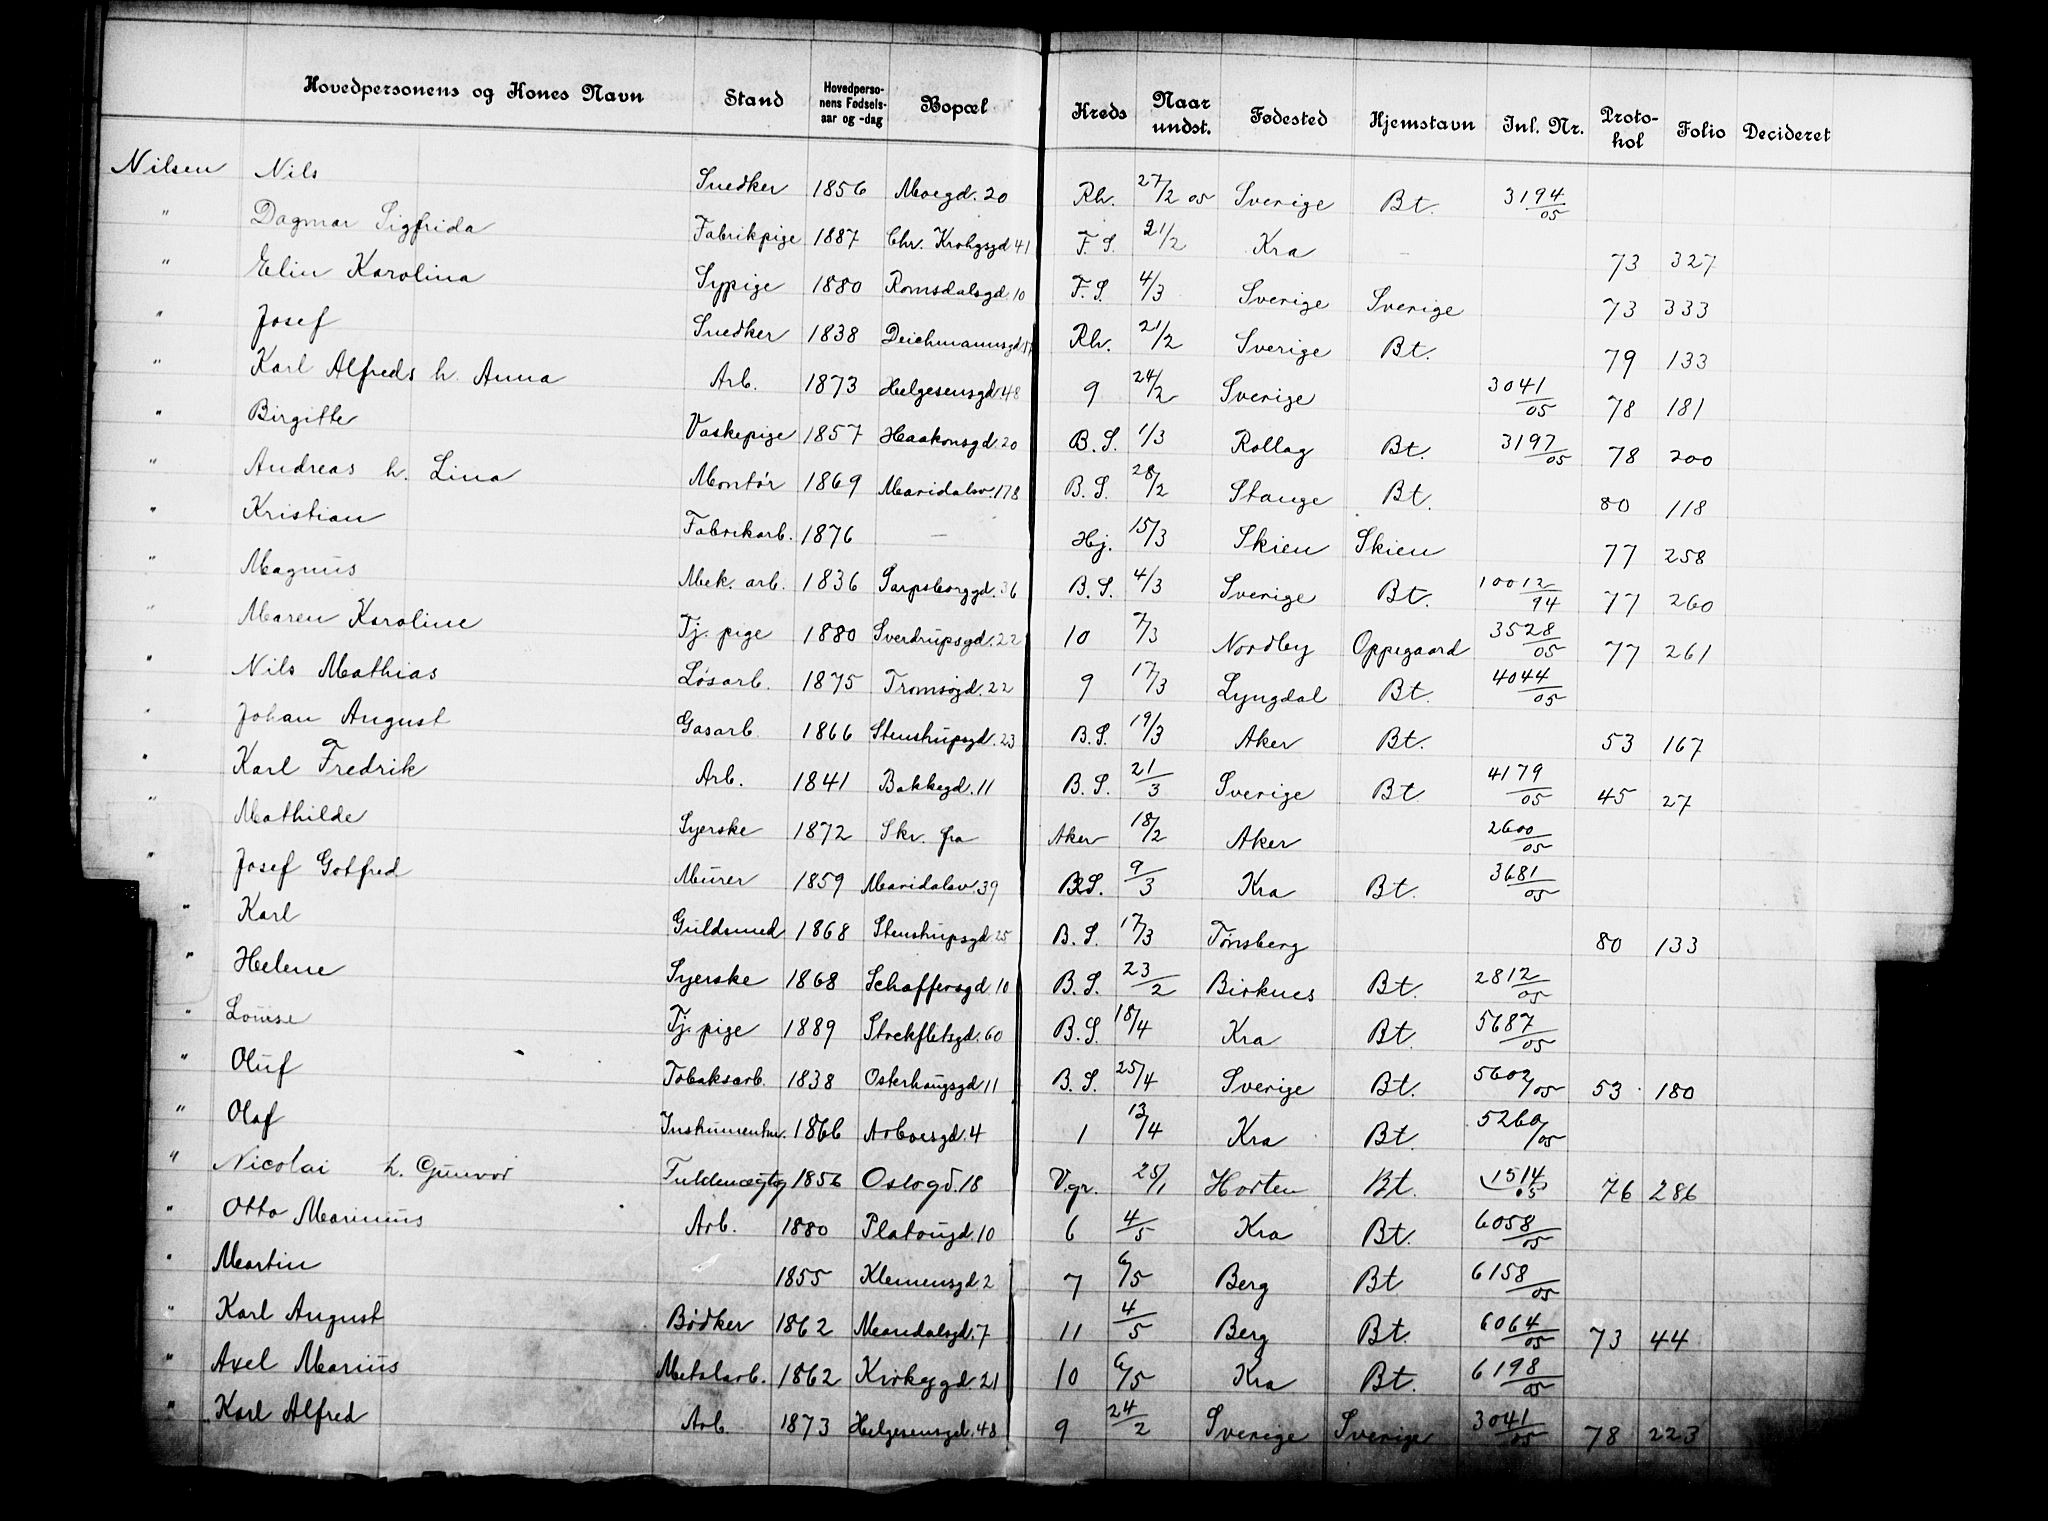 Hovedpersonens og Kones Navn Stand Hovedperso-nens Fødsels-aar og -dag Bopæl Kreds Naar undst. Fødested Hjemstavn Inl. Nr. Proto-kol Folio Decideret
Nilsen Nils Snedker 1856 Moegd. 20 Rh. 27/2 05 Sverige Bt. 3194/05
" Dagmar Sigfrida Fabrikpige 1887 Chr. Krohgsgd 41 F. S. 21/2 Kra — 73 327
" Elin Karolina Sypige 1880 Romsdalsgd 10 F. S. 4/3 Sverige Sverige 73 333
" Josef Snedker 1838 Deichmannsgd Rh. 21/2 Sverige Bt. 79 133
" Karl Alfreds h. Anna Arb. 1873 Helgesensgd. 48 9 24/2 Sverige 3041/05 78 181
" Birgitte Vaskepige 1857 Haakonsgd. 20 B. S. 1/3 Rollag Bt. 3197/05 78 200
" Andreas h. Lina Montør 1869 Maridalsv. 178 B. S. 28/2 Stange Bt. 80 118
" Kristian Fabrikarb. 1876 — Hj. 15/3 Skien Skien 77 258
" Magnus Mek. arb. 1836 Sarpsborggd. 36 B. S. 4/3 Sverige Bt. 10012/94 77 260
" Maren Karoline Tj. pige 1880 Sverdrupsgd. 22 10 7/3 Nordby Oppegaard 3528/05 77 261
" Nils Mathias Løsarb. 1875 Tromsøgd. 22 9 17/3 Lyngdal Bt. 4044/05
" Johan August Gasarb. 1866 Stenstrupsgd. 23 B. S. 19/3 Aker Bt. 53 167
" Karl Fredrik Arb. 1841 Bakkegd. 11 B. S. 21/3 Sverige Bt 4179/05 45 27
" Mathilde Syerske 1872 Skr. fra Aker 18/2 Aker 2600/05
" Josef Gotfred Murer 1859 Maridalsv. 39 B.S. 9/3 Kra Bt. 3681/05
" Karl Guldsmed 1868 Stenstrupsgd 25 B. S. 17/3 Tønsberg 80 133
" Helene Syerske 1868 Schaffersgd 10 B. S. 23/2 Birknes Bt. 2812/05
" Louise Tj. pige 1889 Stockfletsgd. 60 B. S. 18/4 Kra Bt. 5687/05
" Oluf Tobaksarb. 1838 Osterhaugsgd 11 B. S. 25/4 Sverige Bt. 5602/05 53 180
" Olaf Instrumentm. 1866 Arboesgd. 4 1 13/4 Kra Bt. 5260/05
" Nicolai h. Gunvor Fuldmægtig 1856 Oslogd. 18 Vgr. 25/1 Horten Bt. 1514/05 76 286
" Otto Marinius Arb. 1880 Platougd. 10 6 4/5 Kra Bt. 6058/05
" Martin 1855 Klemensgd 2 7 6/5 Berg Bt 6158/05
" Karl August Bødker 1862 Mandalsgd. 7 11 4/5 Berg Bt. 6064/05 73 44
" Axel Marius Metalarb. 1862 Kirkeggd. 21 10 6/5 Kra Bt. 6198/05
" Karl Alfred Arb. 1873 Helgesensgd. 48 9 24/2 Sverige Sverige 3041/05 78 223